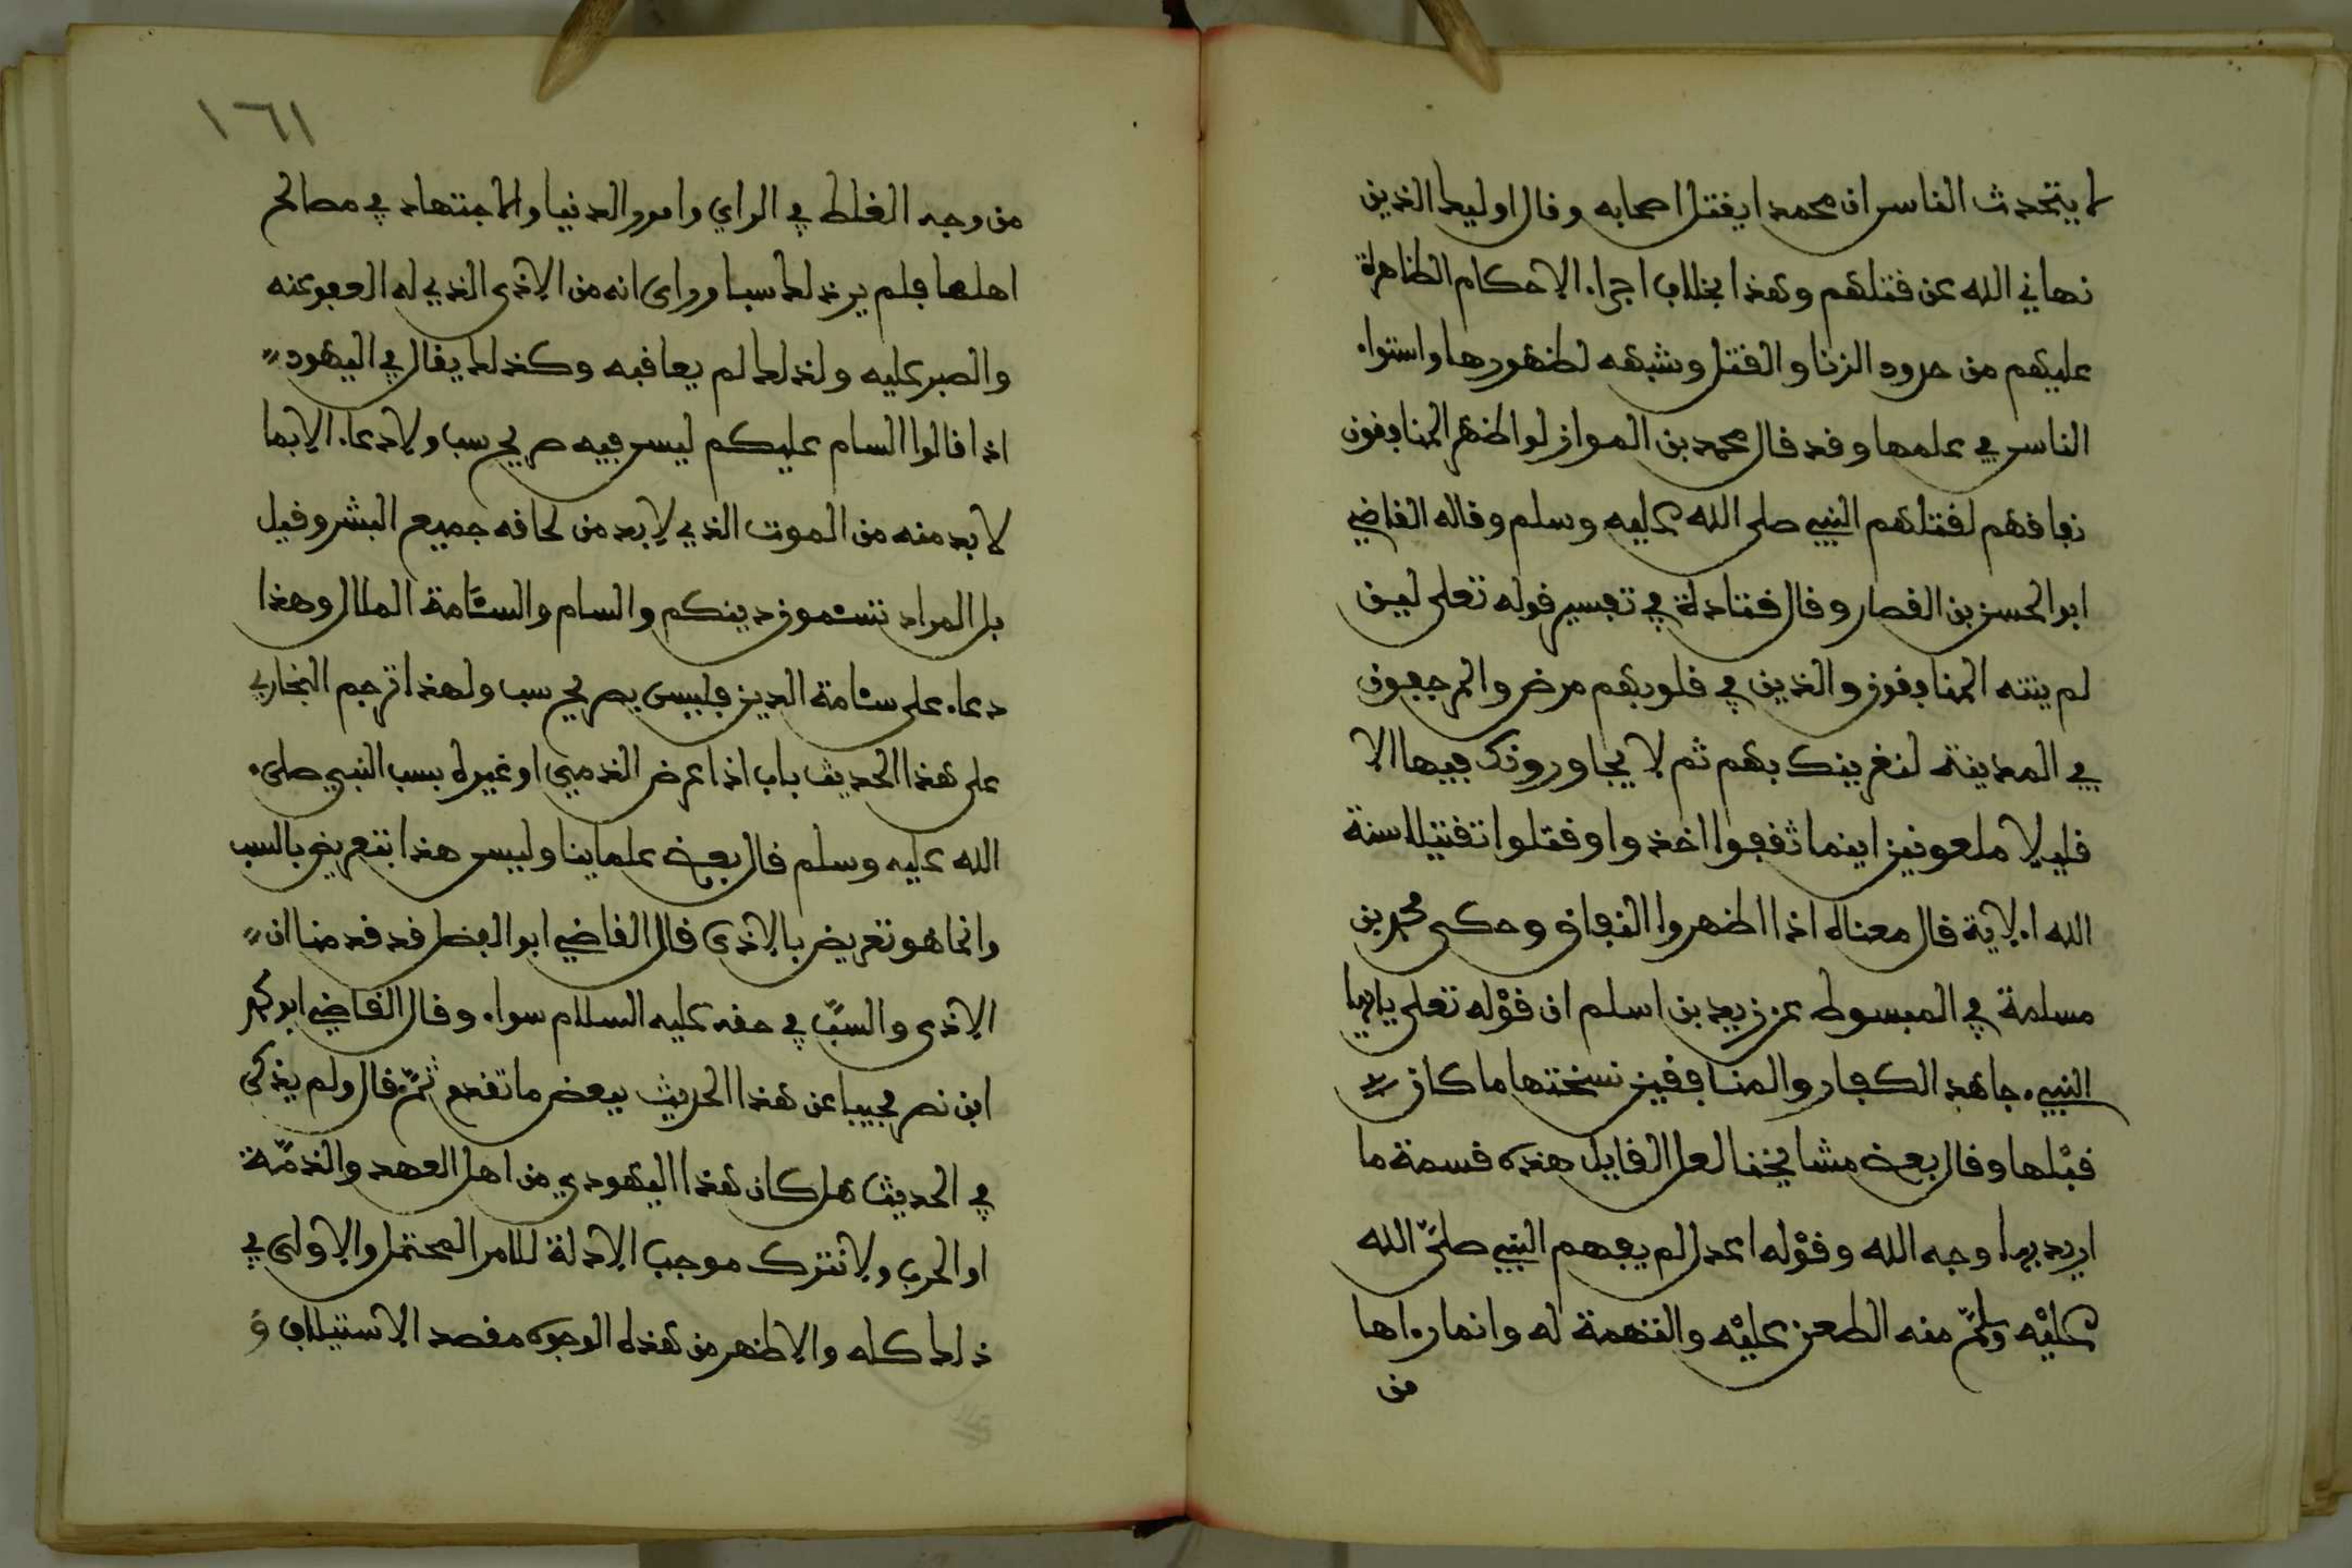 لا يتحدث الناس ان محمدا يقتل اصحابه وقال اوليك الذين
نهاني الله عن قتلهم وهذا بخلاف اجراء الاحكام الظاهرة
عليهم من حدود الزنا والقتل وشبهه لظهورها واستواء
الناس في علمها وقد قال محمد بن المواز لو اظهر المنافقون
نفاقهم لقتلهم النبي صلى الله عليه وسلم وقاله القاضي
ابو الحسن بن القصار وقال قتادة في تفسير قوله تعلى لين
لم ينته المنافقون والذين في قلوبهم مرض والمرجفون
في المدينة لنغرينك بهم ثم لا يجاورونك فيها الا
قليلا ملعونين اينما ثقفوا اخذوا وقتلوا تقتيلا سنة
الله الاية قال معناه اذا اظهروا النفاق وحكى محمد بن
مسلمة في المبسوط عن زيد بن اسلم ان قوله تعلى يايها
النبيء جاهد الكفار والمنافقين نسختها ما كان
قبلها وقال بعض مشايخنا لعل القايل هذه قسمة ما
اريد بها وجه الله وقوله اعدل لم يفهم النبي صلى الله
عليه وسلم منه الطعن عليه والتهمة له وانما رءاها
من
١٦١
من وجه الغلط في الراي وامور الدنيا والاجتهاد في مصالح
اهلها فلم ير ذلك سبا وراى انه من الاذى الذي له العفو عنه
والصبر عليه ولذلك لم يعاقبه وكذلك يقال في اليهود
اذا قالوا السام عليكم ليس فيه صريح سب ولا دعاء الا بما
لا بد منه من الموت الذي لا بد من لحاقه جميع البشر وقيل
بل المراد تسئمون دينكم والسام والسئامة الملال وهذا
دعاء على سئامة الدين فليس بصريح سب ولهذا ترجم البخاري
على هذا الحديث باب اذا عرض الذمي او غيره بسب النبي صلى
الله عليه وسلم قال بعض علماينا وليس هذا بتعريض بالسب
وانما هو تعريض بالاذى قال القاضي ابو الفضل قد قدمنا ان
الاذى والسب في حقه عليه السلام سواء وقال القاضي ابو بكر
ابن نصر مجيبا عن هذا الحديث ببعض ما تقدم ثم قال ولم يذكر
في الحديث هل كان هذا اليهودي من اهل العهد والذمة
او الحرب ولا نترك موجب الادلة للامر المحتمل والاولى في
ذلك كله والاظهر من هذه الوجوه مقصد الاستيلاف و